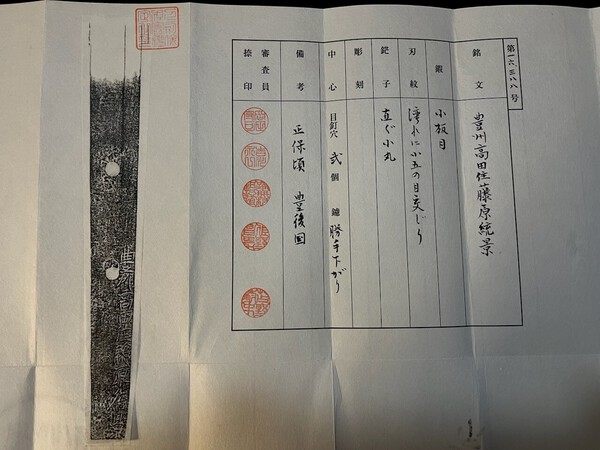 第一六三八八号
銘文 豊州高田住藤原統景
鍛 小板目
刃紋 湾れに小五の目交じり
鋩子 直ぐ小丸
彫刻
中心 目釘穴 弐個 鑢 勝手下がり
備考 正保頃 豊後国
審査員捺印